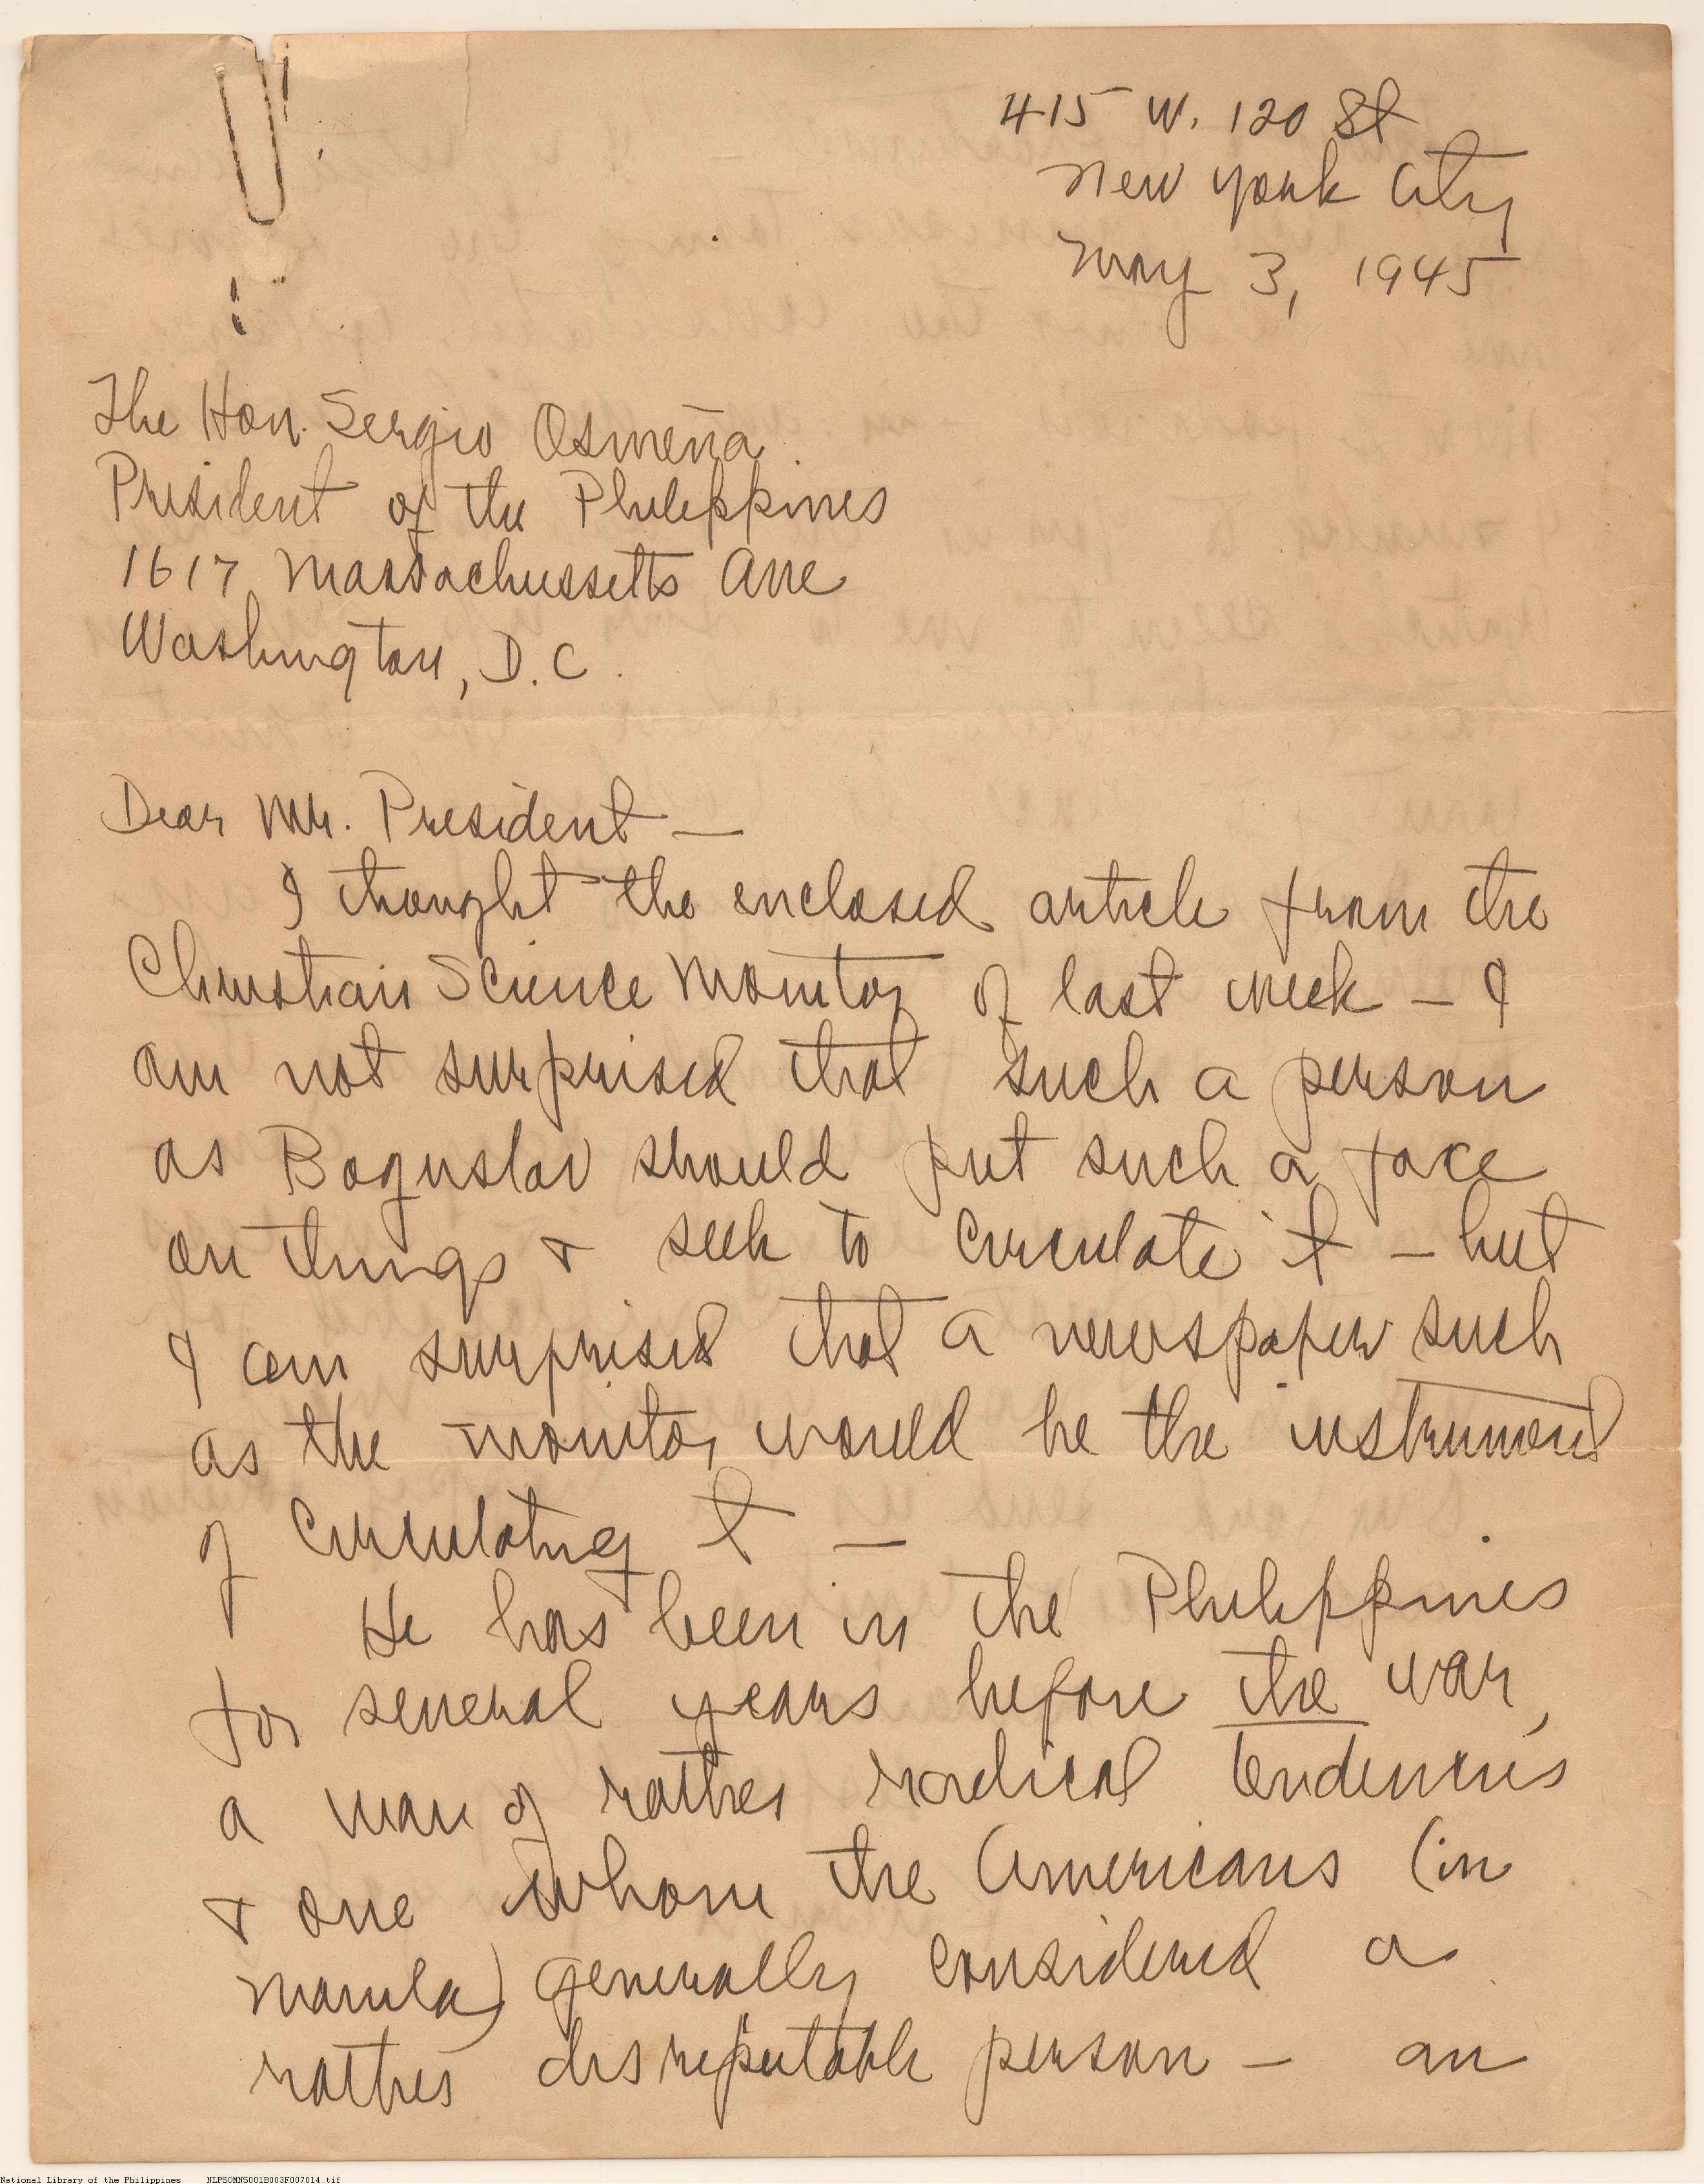 415 W. 120 St
New York City
May 3, 1945
The Hon. Sergio Osmeña
President of the Philippines
1617 Massachussetts Ave
Washington, D.C.
Dear Mr. President —
I thought the enclosed article from the
Christian Science Monitor of last week — I
am not surprised that such a person
as Boguslav should put such a face
on things & seek to circulate it — but
I am surprised that a newspaper such
as the Monitor would be the instrument
of circulating it —
He has been in the Philippines
for several years before the war,
a man of rather radical tendencies
& one whom the Americans (in
Manila) generally considered a
rather disreputable person — an
National Library of the Philippines NLPSOMNS001B003F007014.tif